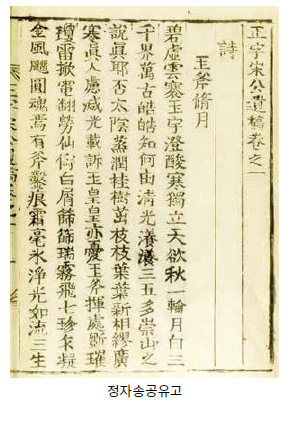 正字宋公遺稿卷之一
詩
玉斧脩月
碧虛雲褰玉宇澄酸寒獨立天欲秋一輪月白三
千界萬古皓皓知何由淸光瀁瀁三五多崇山之
說眞耶否太陰蒸潤桂樹茁枝枝葉葉新相繆廣
寒眞人慮减光載訴玉皇皇亦憂玉斧揮處斷璀
瓊雷掀電翻勞仙儔白屑篩篩瑞霧飛七珍衣凝
金風颼圓魂焉有斧鑿痕霜毫氷淨光如流三生
정자송공유고